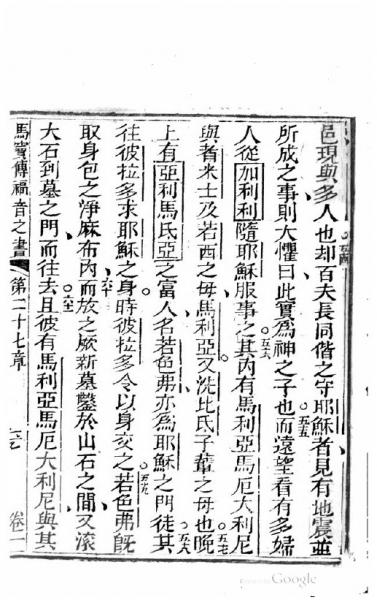 邑現與多人也却百夫長同偕之守耶穌者見有地震並
所成之事則大懼曰此實爲神之子也而遠望看有多婦
人從加利利隨耶穌服事之其內有馬利亞馬厄大利尼
與者米士及若西之母馬利亞又洗比氏子輩之母也晚
上有亞利馬氏亞之富人名若色弗亦爲耶穌之門徒其
往彼拉多求耶穌之身時彼拉多令以身交之若色弗旣
取身包之淨麻布內而放之厥新墓鑿於山石之間又滾
大石到墓之門而往去且彼有馬利亞馬厄大利尼與其
馬竇傳福音之書 第二十七章 卷一
五四
五五
五六
五七
五八
五九
六十
Google